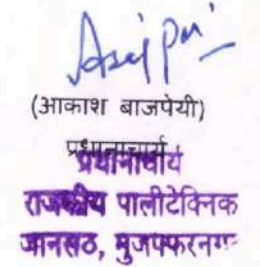 (आकाश बाजपेयी)
प्रधानाचार्य
प्रधानाचार्य
राजकीय पालीटेक्निक
जानसठ, मुजफ्फरनगर